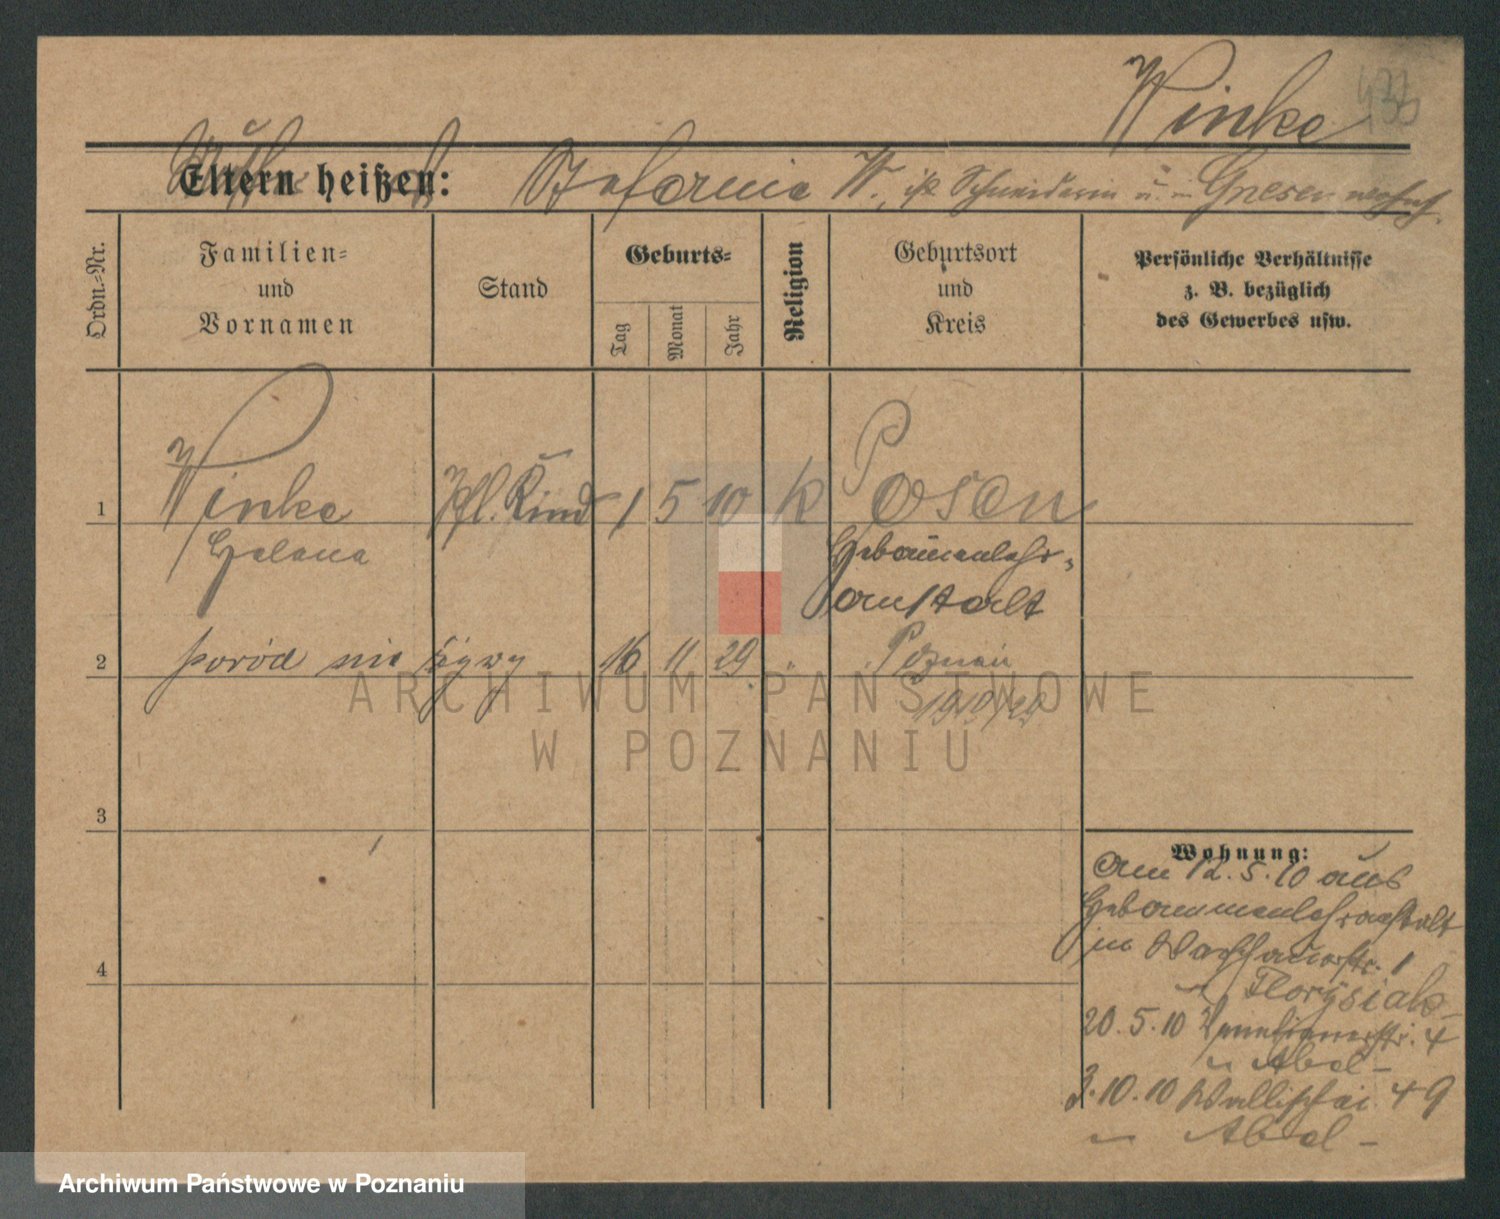 Winke
Eltern heißen: Stefania W., ist Schneiderin u. in Gnesen wohnh.
Ordn.-Nr.
Familien-
und
Vornamen
Stand
Geburts-
Tag
Monat
Jahr
Religion
Geburtsort
und
Kreis
Persönliche Verhältnisse
z. B. bezüglich
des Gewerbes usw.
1 Winke Pfl. Kind 1 5 10 k Posen
Helena Hebammenlehr-
anstalt
2 poród nie żywy 16 11 29 Poznań
3
4
Wohnung:
am 12.5.10 aus
Hebammenlehranstalt
in Warschauerstr. 1
Florysiak
20.5.10 4
Abel
3.10.10 Wallischei 49
Abel
ARCHIWUM PAŃSTWOWE
W POZNANIU
Archiwum Państwowe w Poznaniu